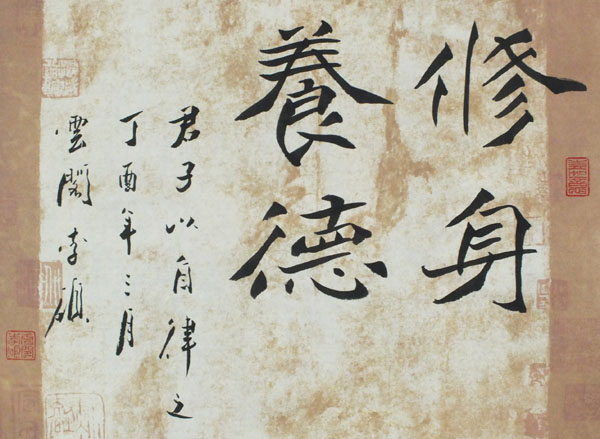 修身
養德
君子以自律之
丁酉年三月
雲閣李碩